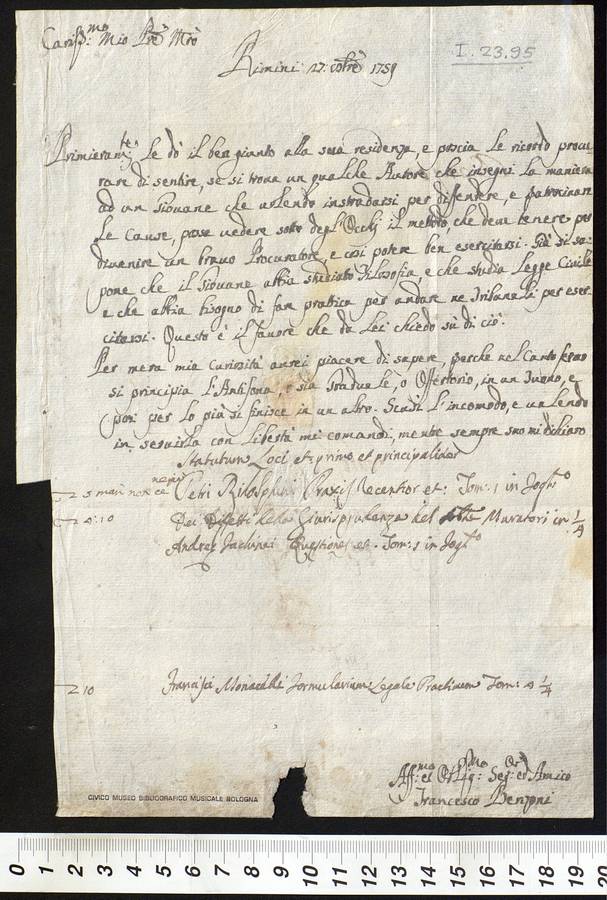 Cariss:mo Mio Pre Mro
I.23.95
Rimini 27: 8bre 1759
Primieram:te Le dò il ben gianto alla sua residenza, e poscia Le ricordo procu
rare di sentire, se si trova un qualche Autore che insegni la maniera
ad un Giovane che volendo instradarsi per diffendere, e patrocinare
Le Cause, possa vedere sotto degl'Occhj il metodo, che deve tenere per
divenire un bravo Procuratore, e così potere ben esercitarsi. Già si sup
pone che il Giovane abbia studiato Filosofia, e che studia Legge Civile
e che abbia bisogno di far prattica per andare ne Tribunali per eser
citarsi. Questo è il favore che da Lei chiedo sù di ciò.
Per mera mia Curiosità averei piacere di sapere, perche nel Canto fermo
si principia L'Antifona, o sia Graduale, ò Offertorio, in un Tuono, e
poi per Lo più si finisce in un altro. Scusi L'incomodo, e valendo
in servirla con Libertà mi comandi, mentre sempre suo mi dichiaro
Statutum Loci et primo et principaliter
Petri Ridolphini Praxis Recentior et: Tom: 1 in fogl:o
4:10 Dei Difetti della Giurisprudenza del Muratori in 1/4
Andrea Fachinei Questiones et. Tom: 1 in fogl:o
10 Francisci Monacelli Formularium Legale Practicum Tom: 4 1/4
Aff:mo et Obblig:mo Ser:or ed Amico
Francesco Benzoni
CIVICO MUSEO BIBLIOGRAFICO MUSICALE BOLOGNA
0 1 2 3 4 5 6 7 8 9 10 11 12 13 14 15 16 17 18 19 20